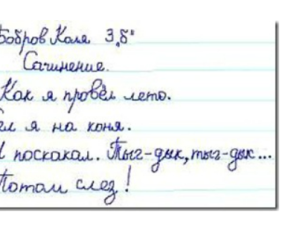 Бобров Коля 3 „б"
Сочинение.
Как я провёл лето.
я на коня.
поскакал. Тыг-дык, тыг-дык...
Потом слез!